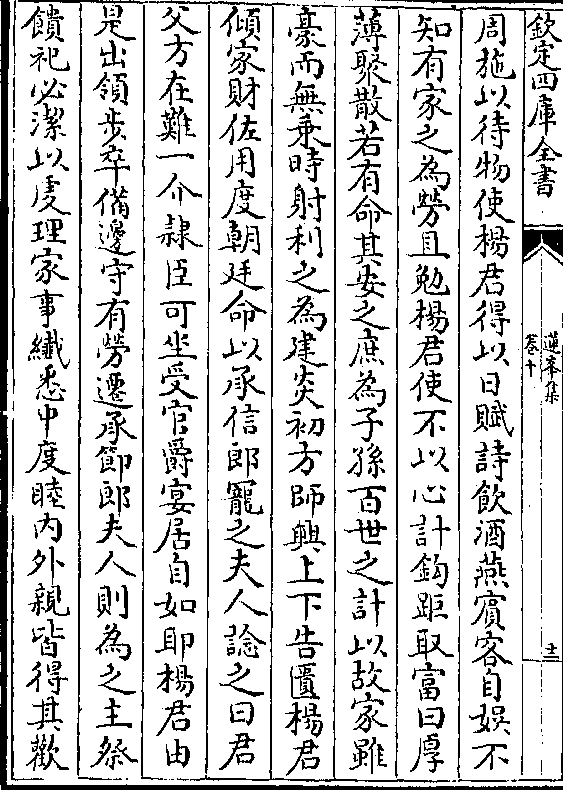 欽定四庫全書
蓮峯集
卷十
十二
周施以待物使楊君得以日賦詩飲酒燕賓客自娱不
知有家之為勞且勉楊君使不以心計鈎距取富曰厚
薄聚散若有命其安之庶為子孫百世之計以故家雖
豪而無乗時射利之為建炎初方師興上下告匱楊君
傾家財佐用度朝廷命以承信郎寵之夫人諗之曰君
父方在難一介隷臣可坐受官爵宴居自如耶楊君由
是出領步卒備邊守有勞遷承節郎夫人則為之主祭
饋祀必潔以䖍理家事纎悉中度睦内外親皆得其歡